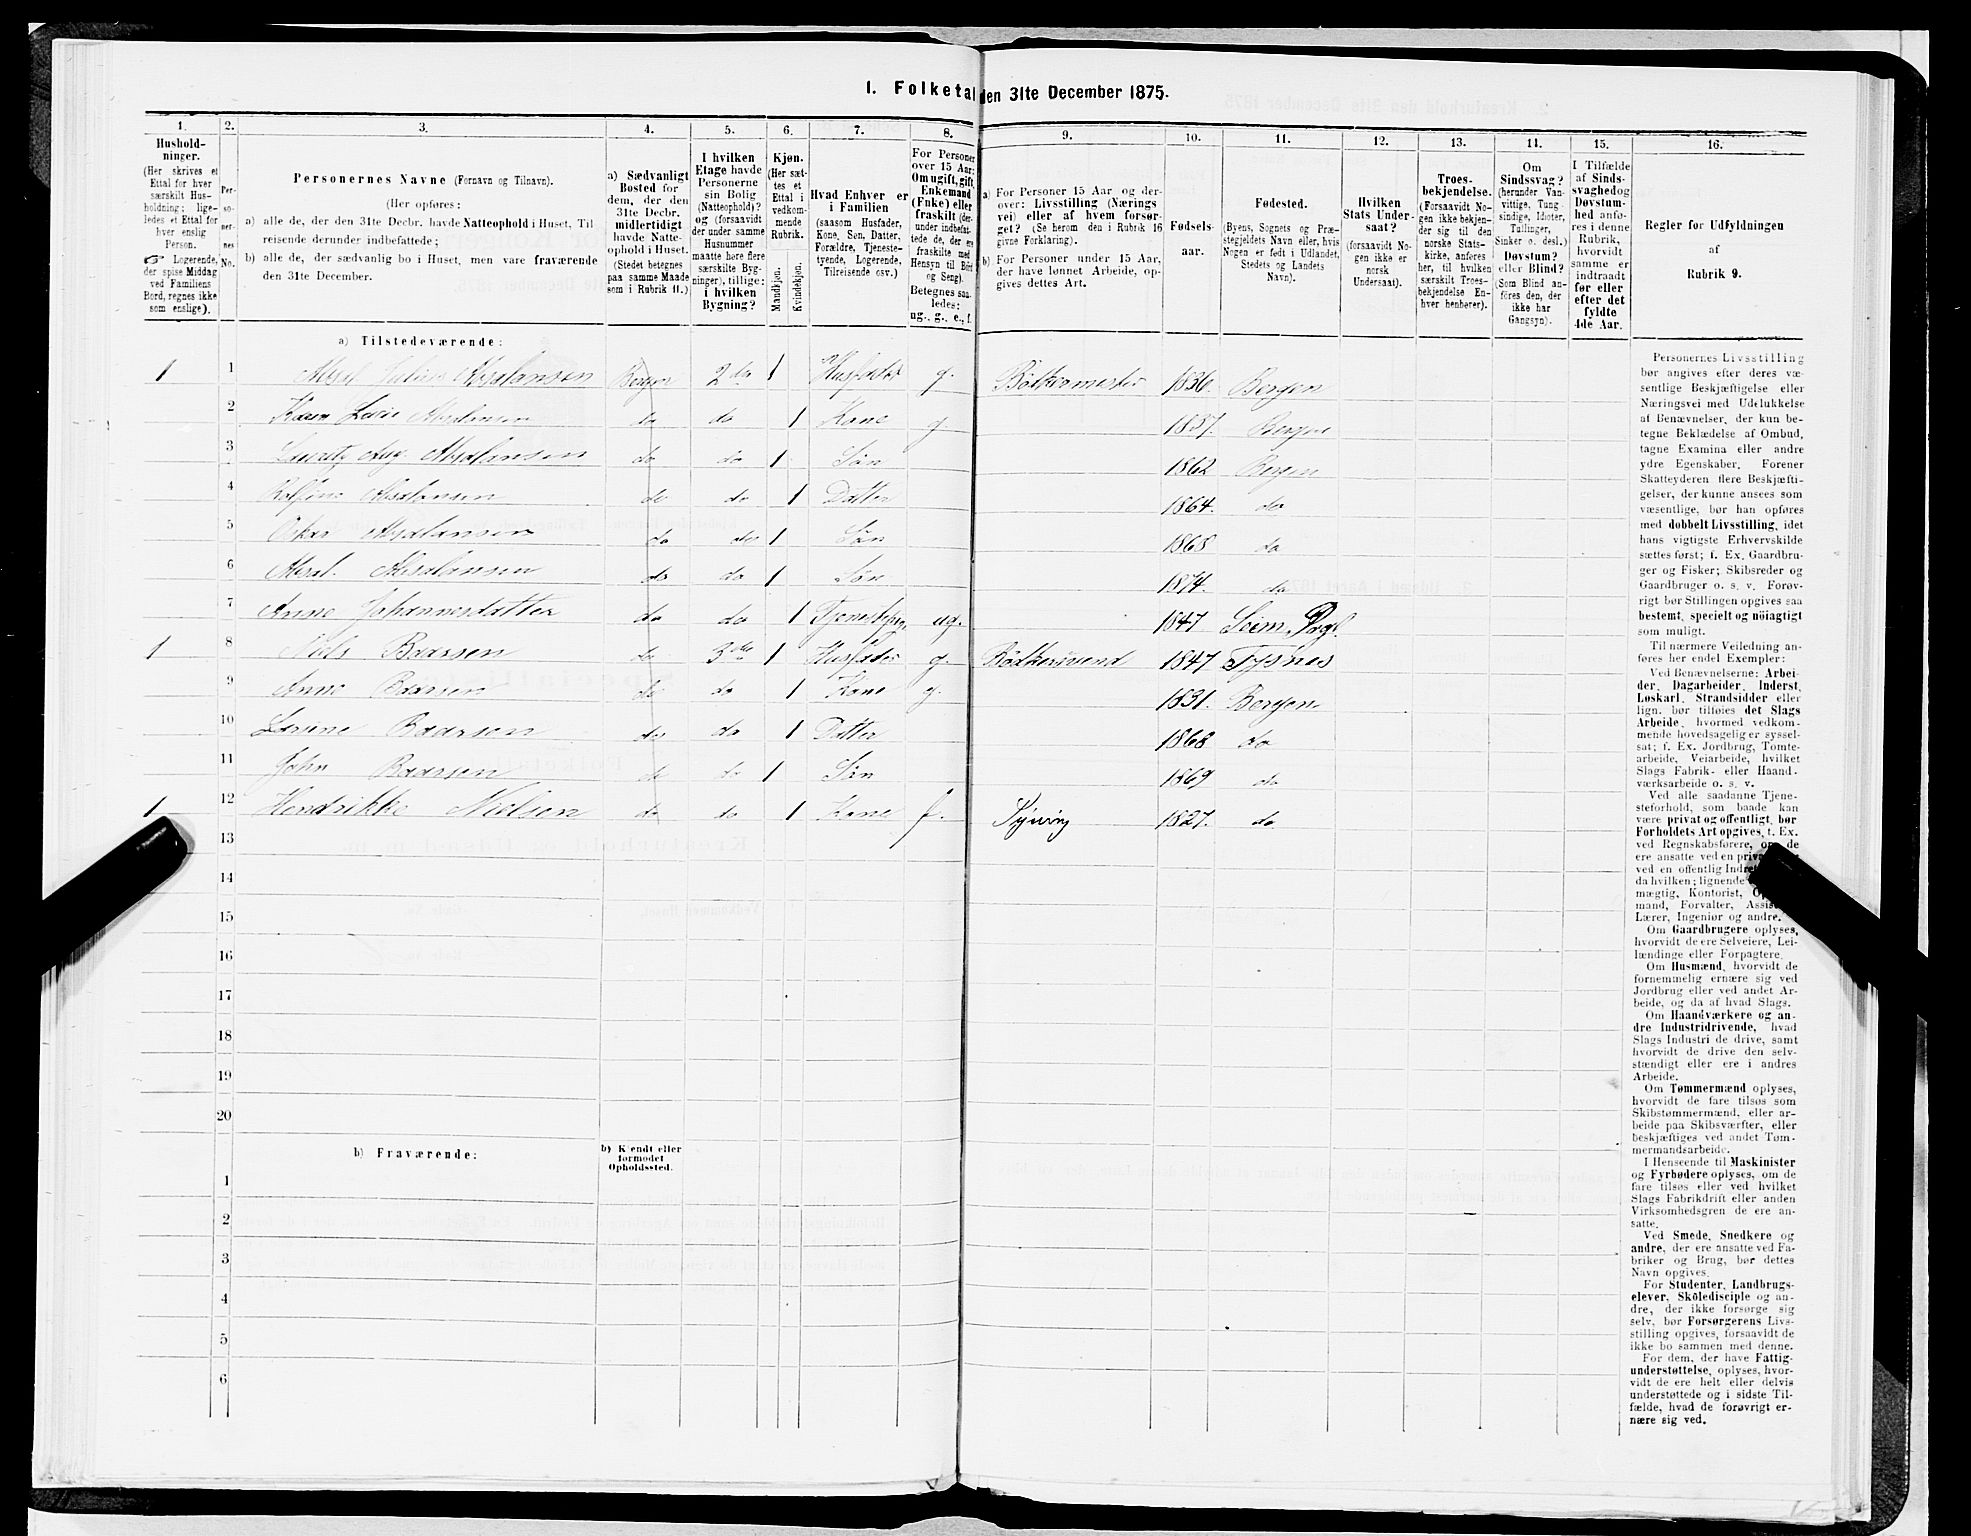 1. Folketal den 31te December 1875.
1. 2. 3. 4. 5. 6. 7. 8. 9. 10. 11. 12. 13. 14. 15. 16.
Hushold-
ninger.
(Her skrives et
Ettal for hver
særskilt Hus-
holdning; lige-
ledes et Ettal for
hver enslig
Person.
☞ Logerende,
der spise Middag
ved Familiens
Bord, regnes ikke
som enslige).
Per-
so-
ner-
nes
No.
Personernes Navne (Fornavn og Tilnavn).
(Her opføres:
a) alle de, der den 31te Decbr. havde Natteophold i Huset, Til
reisende derunder indbefattede;
b) alle de, der sædvanlig bo i Huset, men vare fraværende
den 31te December.
a) Sædvanligt
Bosted for
dem, der den
31te Decbr.
midlertidigt
havde Natte-
ophold i Huset.
(Stedet betegnes
paa samme Maade
som i Rubrik 11.)
I hvilken
Etage havde
Personerne
sin Bolig
(Natteophold)?
og (forsaavidt
der under samme
Husnummer
maatte høre flere
særskilte Byg-
ninger), tillige:
i hvilken
Bygning?
Kjøn.
(Her sæt-
tes et
Ettal i
vedkom-
mende
Rubrik.
Mandkjøn.
Kvindekjøn.
Hvad Enhver er
i Familien
(saasom Husfader,
Kone, Søn, Datter,
Forældre, Tjeneste-
tyende, Logerende,
Tilreisende osv.)
For Personer
over 15 Aar:
Om ugift, gift,
Enkemand
(Enke) eller
fraskilt (der-
under indbefat-
tede de, der ere
fraskilte med
Hensyn til Bord
og Seng).
Betegnes saa-
ledes:
ug., g., e., f.
a) For Personer 15 Aar og der-
over: Livsstilling (Nærings
vei) eller af hvem forsør-
get? (Se herom den i Rubrik 16
givne Forklaring).
b) For Personer under 15 Aar,
der have lønnet Arbeide, op-
gives dettes Art.
Fødsels-
aar.
Fødested.
(Byens, Sognets og Præ-
stegjeldets Navn eller, hvis
Nogen er født i Udlandet,
Stedets og Landets
Navn).
Hvilken
Stats Under-
saat?
(forsaavidt No-
gen ikke er
norsk
Undersaat).
Troes-
bekjendelse.
(Forsaavidt No-
gen ikke bekjen-
der sig til den
norske Stats-
kirke, anføres
her, til hvilken
særskilt Troes-
bekjendelse En-
hver henhører).
Om
Sindssvag?
(herunder Van-
vittige, Tung-
sindige, Idioter,
Tullinger,
Sinker o. desl.)
Døvstum?
eller Blind?
(Som Blind an-
føres den, der
ikke har
Gangsyn).
I Tilfælde
af Sinds-
svaghed og
Døvstum-
hed anfø-
res i denne
Rubrik,
hvorvidt
samme er
indtraadt
før eller
efter det
fyldte
4de Aar.
Regler for Udfyldningen
af
Rubrik 9.
a) Tilstedeværende:
1 1 Absalonsen Bergen 2da 1 Husfader g. Bödkermester 1836. Bergen
2 Absalonsen do do 1 Kone g. 1837. Bergen
3 Lauritz Aug Absalonsen do do 1 Sön 1862 Bergen
4 Absalonsen do do 1 Datter 1864. do
5 Oskar Absalonsen do do 1 Sön 1868 do
6 Absal. Absalonsen do do 1 Sön 1874. do
7 Anne Johannesdatter do do 1 ug. 1847 Seim, Prgl.
1 8 Niels Baarsen do 3de 1 Husfader g. Bödkersvend 1847 Tysnes
9 Anne Baarsen do do 1 Kone g. 1831. Bergen
10 Baarsen do do 1 Datter 1868 do
11 John Baarsen do do 1 Sön 1869 do
1 12 Hendrikke Nielsen do do 1 Kone f. Syning 1827. do
13
14
15
16
17
18
19
20
b) Fraværende:
b) Kjendt eller
formodet
Opholdssted.
1
2
3
4
5
6
Personernes Livsstilling
bør angives efter deres væ-
sentlige Beskjæftigelse eller
Næringsvei med Udelukkelse
af Benævnelser, der kun be-
tegne Beklædelse af Ombud,
tagne Examina eller andre
ydre Egenskaber. Forener
Skatteyderen flere Beskjæfti-
gelser, der kunne ansees som
væsentlige, bør han opføres
med dobbelt Livsstilling, idet
hans vigtigste Erhvervskilde
sættes først; f. Ex. Gaardbru-
ger og Fisker; Skibsreder og
Gaardbruger o. s. v. Forøv-
rigt bør Stillingen opgives saa
bestemt, specielt og nöiagtigt
som muligt.
Til nærmere Veiledning an-
føres her endel Exempler:
Ved Benævnelserne: Arbei-
der, Dagarbeider, Inderst,
Løskarl, Strandsidder eller
lign. bør tilføies det Slags
Arbeide, hvormed vedkom-
mende hovedsagelig er syssel-
sat; f. Ex. Jordbrug, Tomte-
arbeide, Veiarbeide, hvilket
Slags Fabrik- eller Haand-
værksarbeide o. s. v.
Ved alle saadanne Tjene-
steforhold, som baade kan
være privat og offentligt, bør
Forholdets Art opgives, t. Ex.
ved Regnskabsførere, om de
ere ansatte ved en privat
ved en offentlig
da hvilken; lignende
mægtig, Kontorist,
mand, Forvalter,
Lærer, Ingeniør og andre.
Om Gaardbrugere oplyses,
hvorvidt de ere Selveiere, Lei-
lændinge eller Forpagtere.
Om Husmænd, hvorvidt de
fornemmelig ernære sig ved
Jordbrug eller ved andet Ar-
beide, og da af hvad Slags.
Om Haandværkere og an-
dre Industridrivende, hvad
Slags Industri de drive, samt
hvorvidt de drive den selv-
stændigt eller ere i andres
Arbeide.
Om Tømmermænd oplyses,
hvorvidt de fare tilsøs som
Skibstømmermænd, eller ar-
beide paa Skibsværfter, eller
beskjæftiges ved andet Tøm-
mermandsarbeide.
I Henseende til Maskinister
og Fyrbødere oplyses, om de
fare tilsøs eller ved hvilket
Slags Fabrikdrift eller anden
Virksomhedsgren de ere an-
satte.
Ved Smede, Snedkere og
andre, der ere ansatte ved Fa-
briker og Brug, bør dettes
Navn opgives.
For Studenter, Landbrugs-
elever, Skoledisciple og an-
dre, der ikke forsørge sig
selv, bør Forsørgerens Livs-
stilling opgives, forsaavidt de
ikke bo sammen med denne.
For dem, der have Fattig-
understøttelse, oplyses, hvor-
vidt de ere helt eller delvis
understøttede og i sidste Til-
fælde, hvad de forøvrigt er-
nære sig ved.